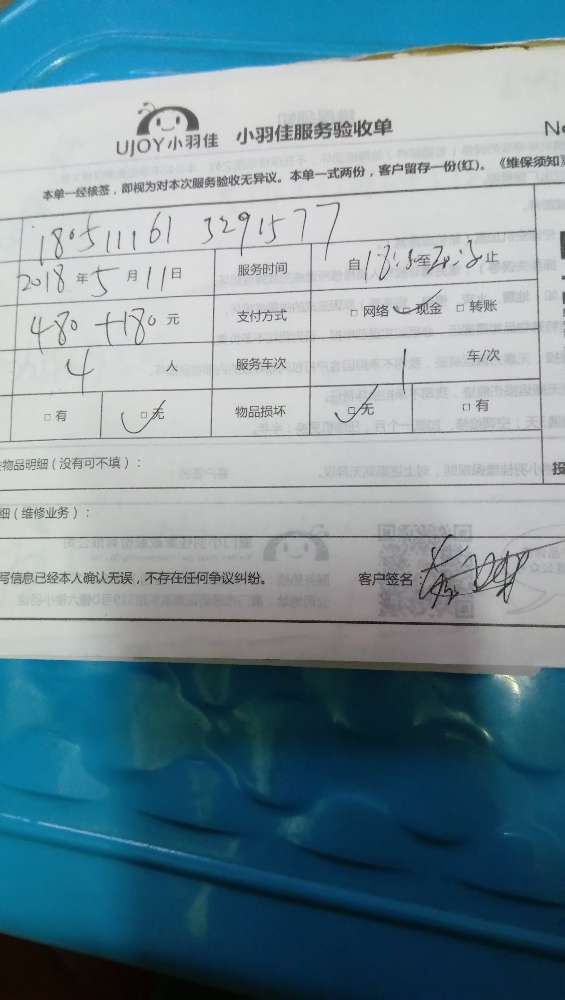 UJOY小羽佳 小羽佳服务验收单
本单一经核签，即视为对本次服务验收无异议。本单一式两份，客户留存一份(红)。《维保须知》
180511161 3291577
2018年5月11日 服务时间 自 至 止
480+180元 支付方式 □网络 □现金 □转账
4人 服务车次 1车/次
□有 □无 物品损坏 □无 □有
物品明细（没有可不填）：
细（维修业务）：
写信息已经本人确认无误，不存在任何争议纠纷。 客户签名：